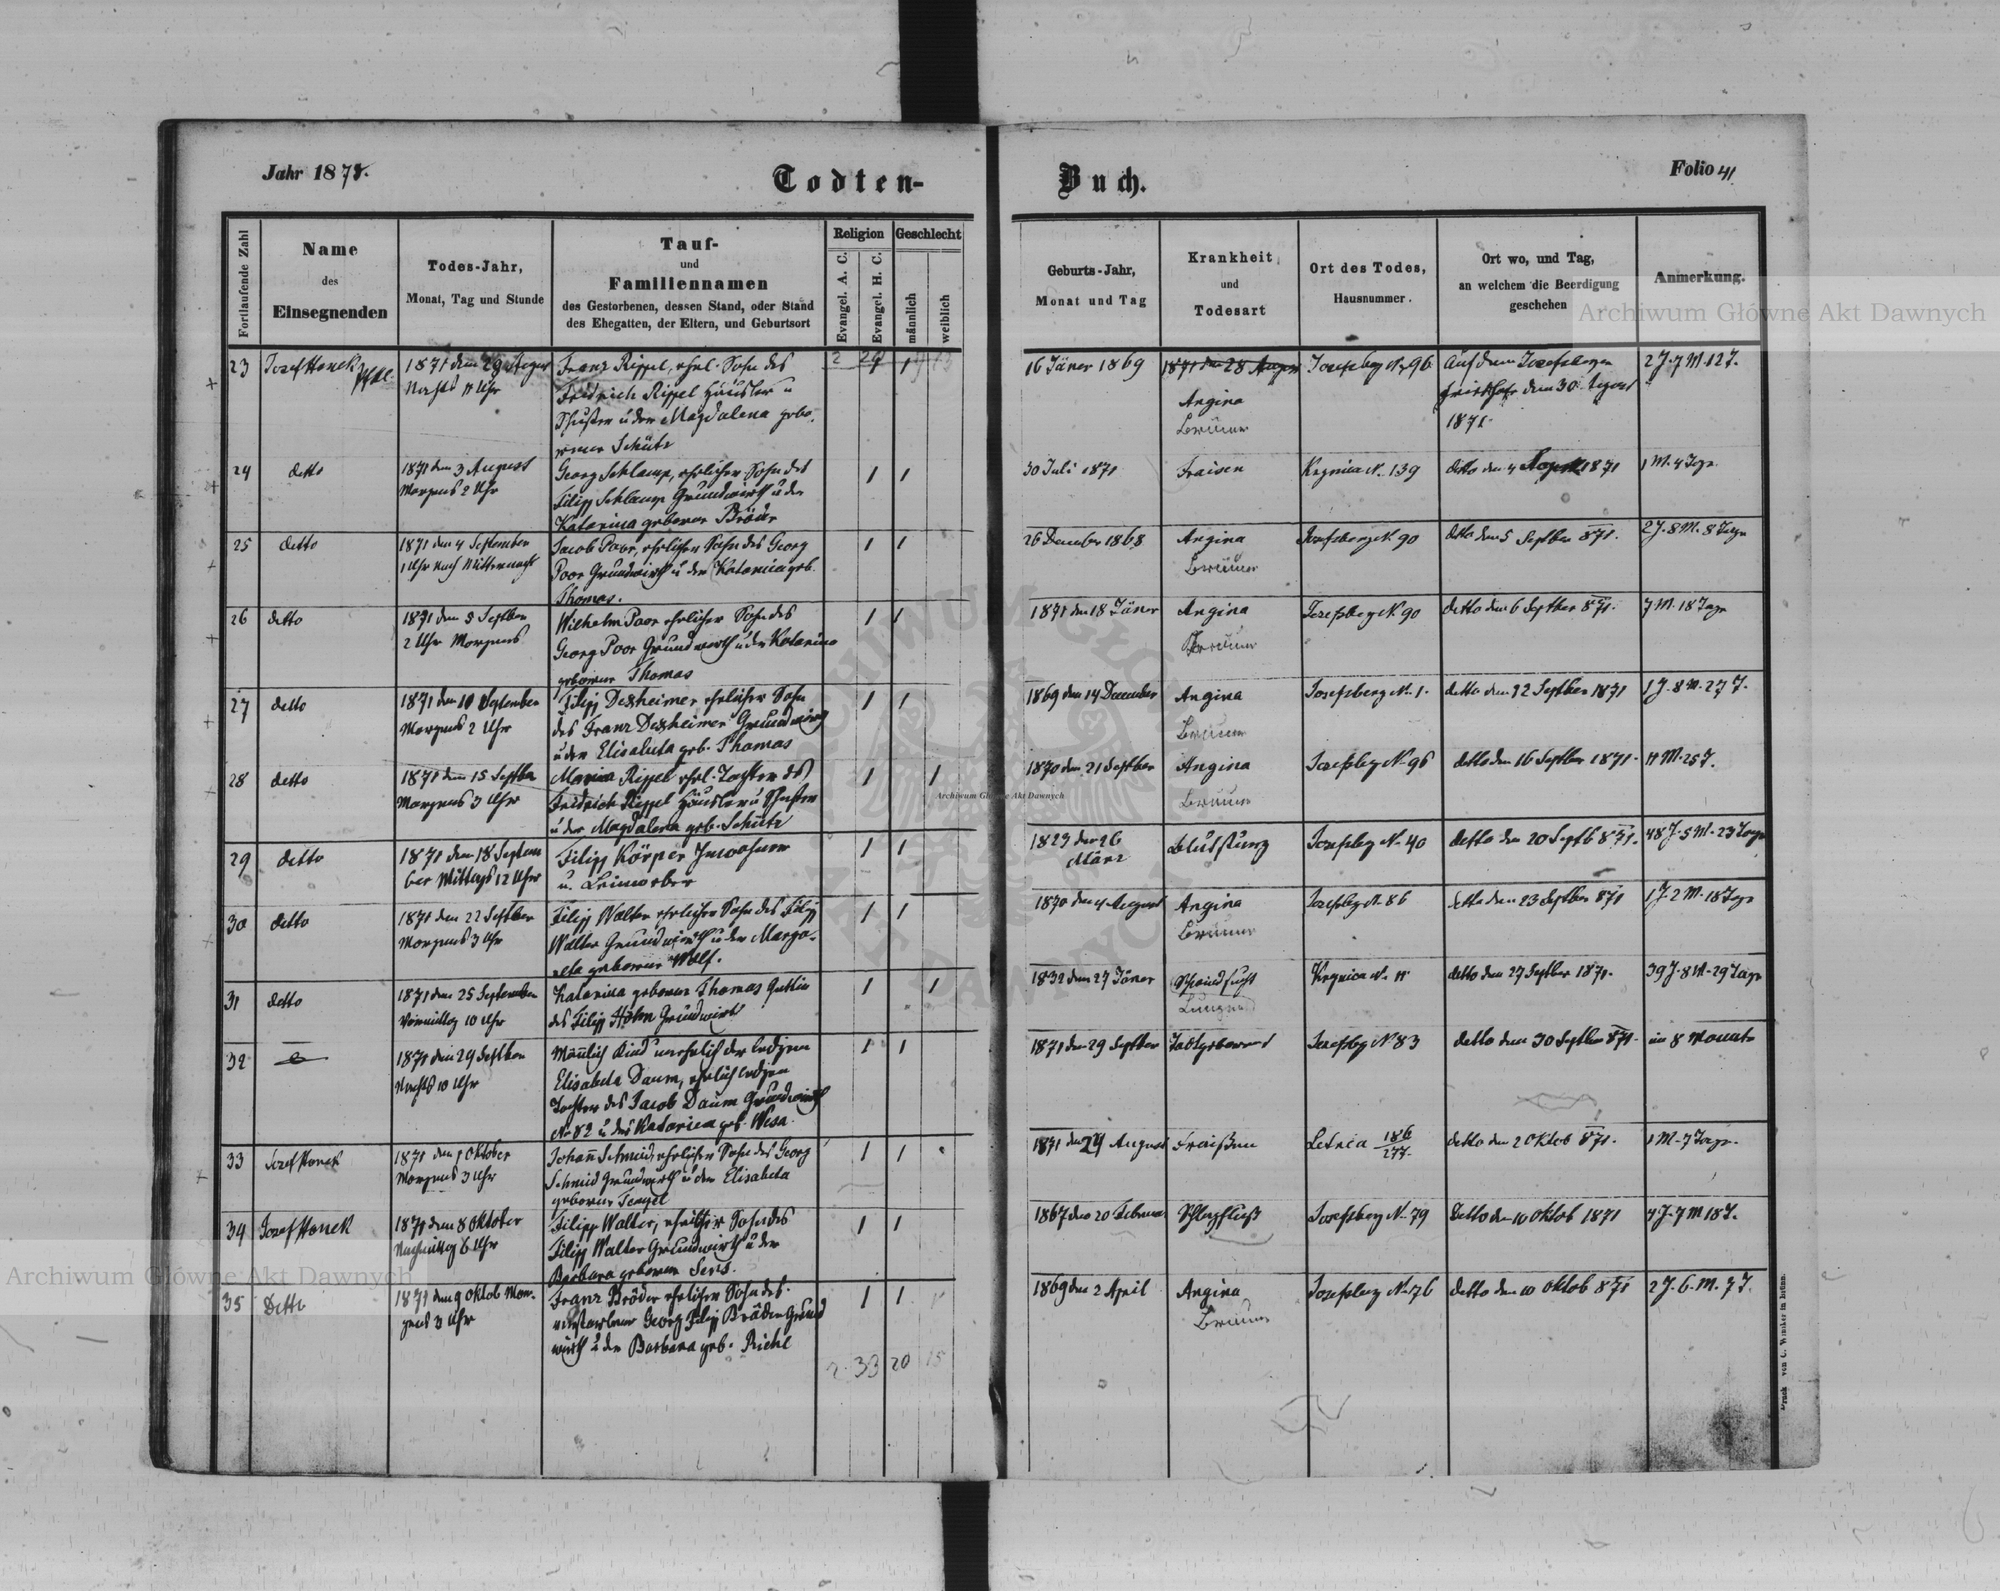 Jahr 1871.
Todten-
Buch.
Folio 41
Fortlaufende Zahl
Name
des
Einsegnenden
Todes-Jahr,
Monat, Tag und Stunde
Tauf-
und
Familiennamen
des Gestorbenen, dessen Stand, oder Stand
des Ehegatten, der Eltern, und Geburtsort
Religion
Evangel. A. C.
Evangel. H. C.
Geschlecht
männlich
weiblich
Geburts-Jahr,
Monat und Tag
Krankheit
und
Todesart
Ort des Todes,
Hausnummer.
Ort wo, und Tag,
an welchem die Beerdigung
geschehen
Anmerkung.
23
Josef Honek
1871 den 29 August
Nachts 11 Uhr
Franz Rippel, ehel. Sohn des
Fridrich Rippel Häusler u
Schuster u der Magdalena gebo-
rener Schütz
2 29
1
1
16 Jäner 1869
1871 den 28 August
Angina
Bräune
Josefsberg N. 96
Auf dem Josefsberger
Friedhofe den 30 August
1871.
2 J. 7 M. 12 T.
24
detto
1871 den 3 August
Morgens 2 Uhr
Georg Schlamp, ehelicher Sohn des
Filipp Schlamp Grundwirth u der
Katarina geborner Bröder
1
1
30 Juli 1871
Fraisen
Krynica N. 139
detto den 4 August 1871
1 M. 4 Tage
25
detto
1871 den 4 September
1 Uhr nach Mitternacht
Jacob Poor, ehelicher Sohn des Georg
Poor Grundwirth u der Katarina geb.
Thomas.
1
1
26 December 1868
Angina
Bräune
Josefsberg N. 90
detto den 5 Septber 871.
2 J. 8 M. 8 Tage
26
detto
1871 den 5 Septber
2 Uhr Morgens
Wilhelm Poor ehelicher Sohn des
Georg Poor Grundwirth u der Katarina
geborner Thomas
1
1
1871 den 18 Jäner
Angina
Bräune
Josefsberg N. 90
detto den 6 Septber 871.
7 M. 18 Tage
27
detto
1871 den 10 September
Morgens 2 Uhr
Filipp Dexheimer, ehelicher Sohn
des Franz Dexheimer Grundwirth
u der Elisabeta geb. Thomas
1
1
1869 den 14 December
Angina
Bräune
Josefsberg N. 1.
detto den 12 Septber 1871
1 J. 8 M. 27 T.
28
detto
1871 den 15 Septber
Morgens 3 Uhr
Maria Rippel ehel. Tochter des
Fridrich Rippel Häusler u Schuster
u der Magdalena geb. Schütz
1
1
1870 den 21 Septber
Angina
Bräune
Josefsbg N. 96
detto den 16 Septber 1871.
11 M. 25 T.
29
detto
1871 den 18 Septem
ber Mittags 12 Uhr
Filipp Körper Inwohner
u. Leinweber
1
1
1823 den 26
März
Blutsturz
Josefsbg N. 40
detto den 20 Septb 871.
48 J. 5 M. 23 Tage
30
detto
1871 den 22 Septber
Morgens 3 Uhr
Filipp Walter ehelicher Sohn des Filipp
Walter Grundwirth u der Marga-
reta geborner Wolf.
1
1
1870 den 4 August
Angina
Bräune
Josefsbg N. 86
detto den 23 Septber 871
1 J. 2 M. 18 Tage
31
detto
1871 den 25 September
Vormittag 10 Uhr
Katarina geborner Thomas Gattin
des Filipp Höhn Grundwirts
1
1
1832 den 27 Jäner
Schwindsucht
Lungen
Krynica N. 11
detto den 27 Septber 1871.
39 J. 8 M. 29 Tage
32
1871 den 29 Septber
Nachts 10 Uhr
Mänlich Kind unehelich der ledigen
Elisabeta Daum, ehelich ledigen
Tochter des Jacob Daum Grundwirth
N. 82 u der Katarina geb. Wesa.
1
1
1871 den 29 Septber
Todtgeborend
Josefsbg N 83
detto den 30 Septber 871.
im 8 Monate
33
Josef Honek
1871 den 1 Oktober
Morgens 3 Uhr
Johann Schmid, ehelicher Sohn des Georg
Schmid Grundwirth u der Elisabeta
geborner
1
1
1871 den 24 August
Fraißen
Letnia 186/277.
detto den 2 Oktob 871.
1 M. 7 Tage.
34
Josef Honek
1871 den 8 Oktober
Nachmittag 6 Uhr
Filipp Walter, ehelicher Sohn des
Filipp Walter Grundwirth u der
Barbara geborner Sens.
1
1
1867 den 20 Februar
Schlagfluß
Josefsberg N. 79
Detto den 10 Oktob 1871
4 J. 7 M 18 T.
35
Detto
1871 den 9 Oktob Mor-
gens 3 Uhr
Franz Bröder ehelicher Sohn des
verstorbener Georg Filipp Bröder Grund
wirth u der Barbara geb. Riehl
1
1
1869 den 2 April
Angina
Bräune
Josefsberg N. 76
detto den 10 Oktob 871
2 J. 6. M. 7 T.
2 33 20 15
Druck von C. Winiker in Brünn.
Archiwum Główne Akt Dawnych
Archiwum Główne Akt Dawnych
Archiwum Główne Akt Dawnych